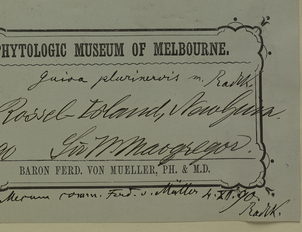 PHYTOLOGIC MUSEUM OF MELBOURNE.
Guioa plurinervis n. Radlk.
Rossel-Island, New Guinea.
90 Sir W. Macgregor.
BARON FERD. VON MUELLER, PH. & M.D.
Mecum comm. Ferd. v. Müller 4.XII.90.
Radlk.